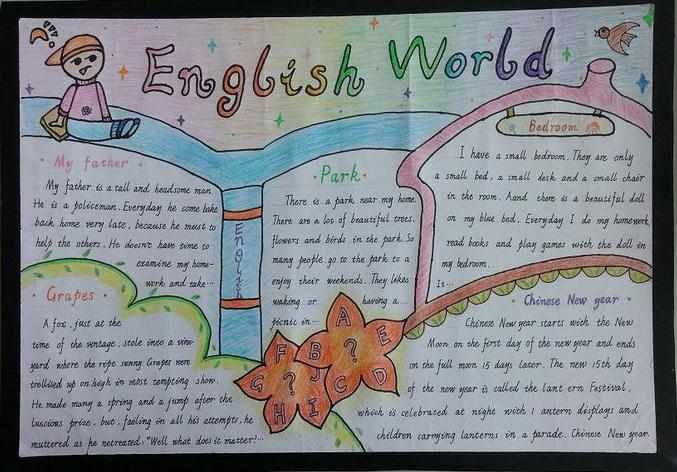 English World
My father
My father is a tall and headsome man.
He is a policeman. Everyday he come bake
back home very late, because he must to
help the others. He doesn't have time to
examine my home-
work and take...
Grapes
A fox, just at the
time of the vintage, stole into a vine-
yard where the ripe sunny Grapes were
trellised up on high in most tempting show.
He made many a spring and a jump after the
luscious prize. but, failing in all his attempts, he
muttered as he retreated. "Well what does it matter!...
English
Park
There is a park near my home.
There are a lot of beautiful trees,
flowers and birds in the park. So
many people go to the park to a
enjoy their weekends. They likes
waking or having a...
picnic in...
A
B
C
D
E
?
F
G
H
I
J
?
Bedroom
I have a small bedroom. They are only
a small bed, a small desk and a small chair
in the room. Aand there is a beautiful doll
on my blue bed. Everyday I do my homework
read books and play games with the doll in
my bedroom.
Is...
Chinese New year
Chinese New year starts with the New
Moon on the first day of the new year and ends
on the full moon 15 days later. The new 15th day
of the new year is called the lant ern Festival,
which is celebrated at night with l antern displays and
children carrying lanterns in a parade. Chinese New year.